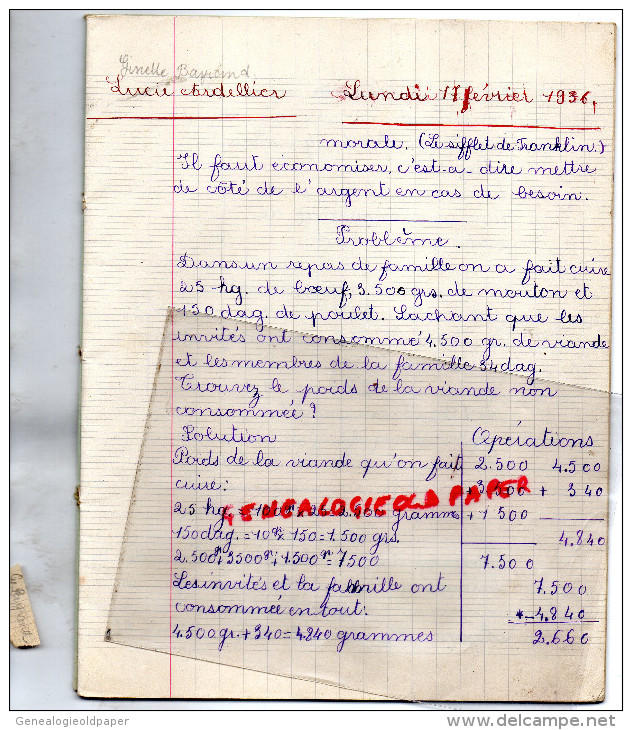 Ginelle Bayrand
Lucie Ardellier Lundi 17 février 1936.
morale. (Le sifflet de Franklin.)
Il faut économiser, c'est-a-dire mettre
de côté de l'argent en cas de besoin.
Problème.
Dans un repas de famille on a fait cuire
25 hg. de bœuf, 3.500 grs. de mouton et
150 dag. de poulet. Sachant que les
invités ont consommé 4.500 gr. de viande
et les membres de la famille 34 dag.
Trouvez le poids de la viande non
consommée ?
Solution Opérations
Poids de la viande qu'on fait 2.500 4.500
cuire: + 3.500 + 340
25 hg. = 100 gr × 25 = 2.500 gramm + 1 500
150 dag. = 10 gr × 150 = 1.500 grs. 4.840
2.500 gr + 3500 gr + 1.500 gr = 7500 7.500
Les invités et la famille ont 7.500
consommée en tout: - 4.840
4.500 gr. + 340 = 4.840 grammes 2.660
GENEALOGIE OLD PAPER
Genealogieoldpaper www.delcampe.net